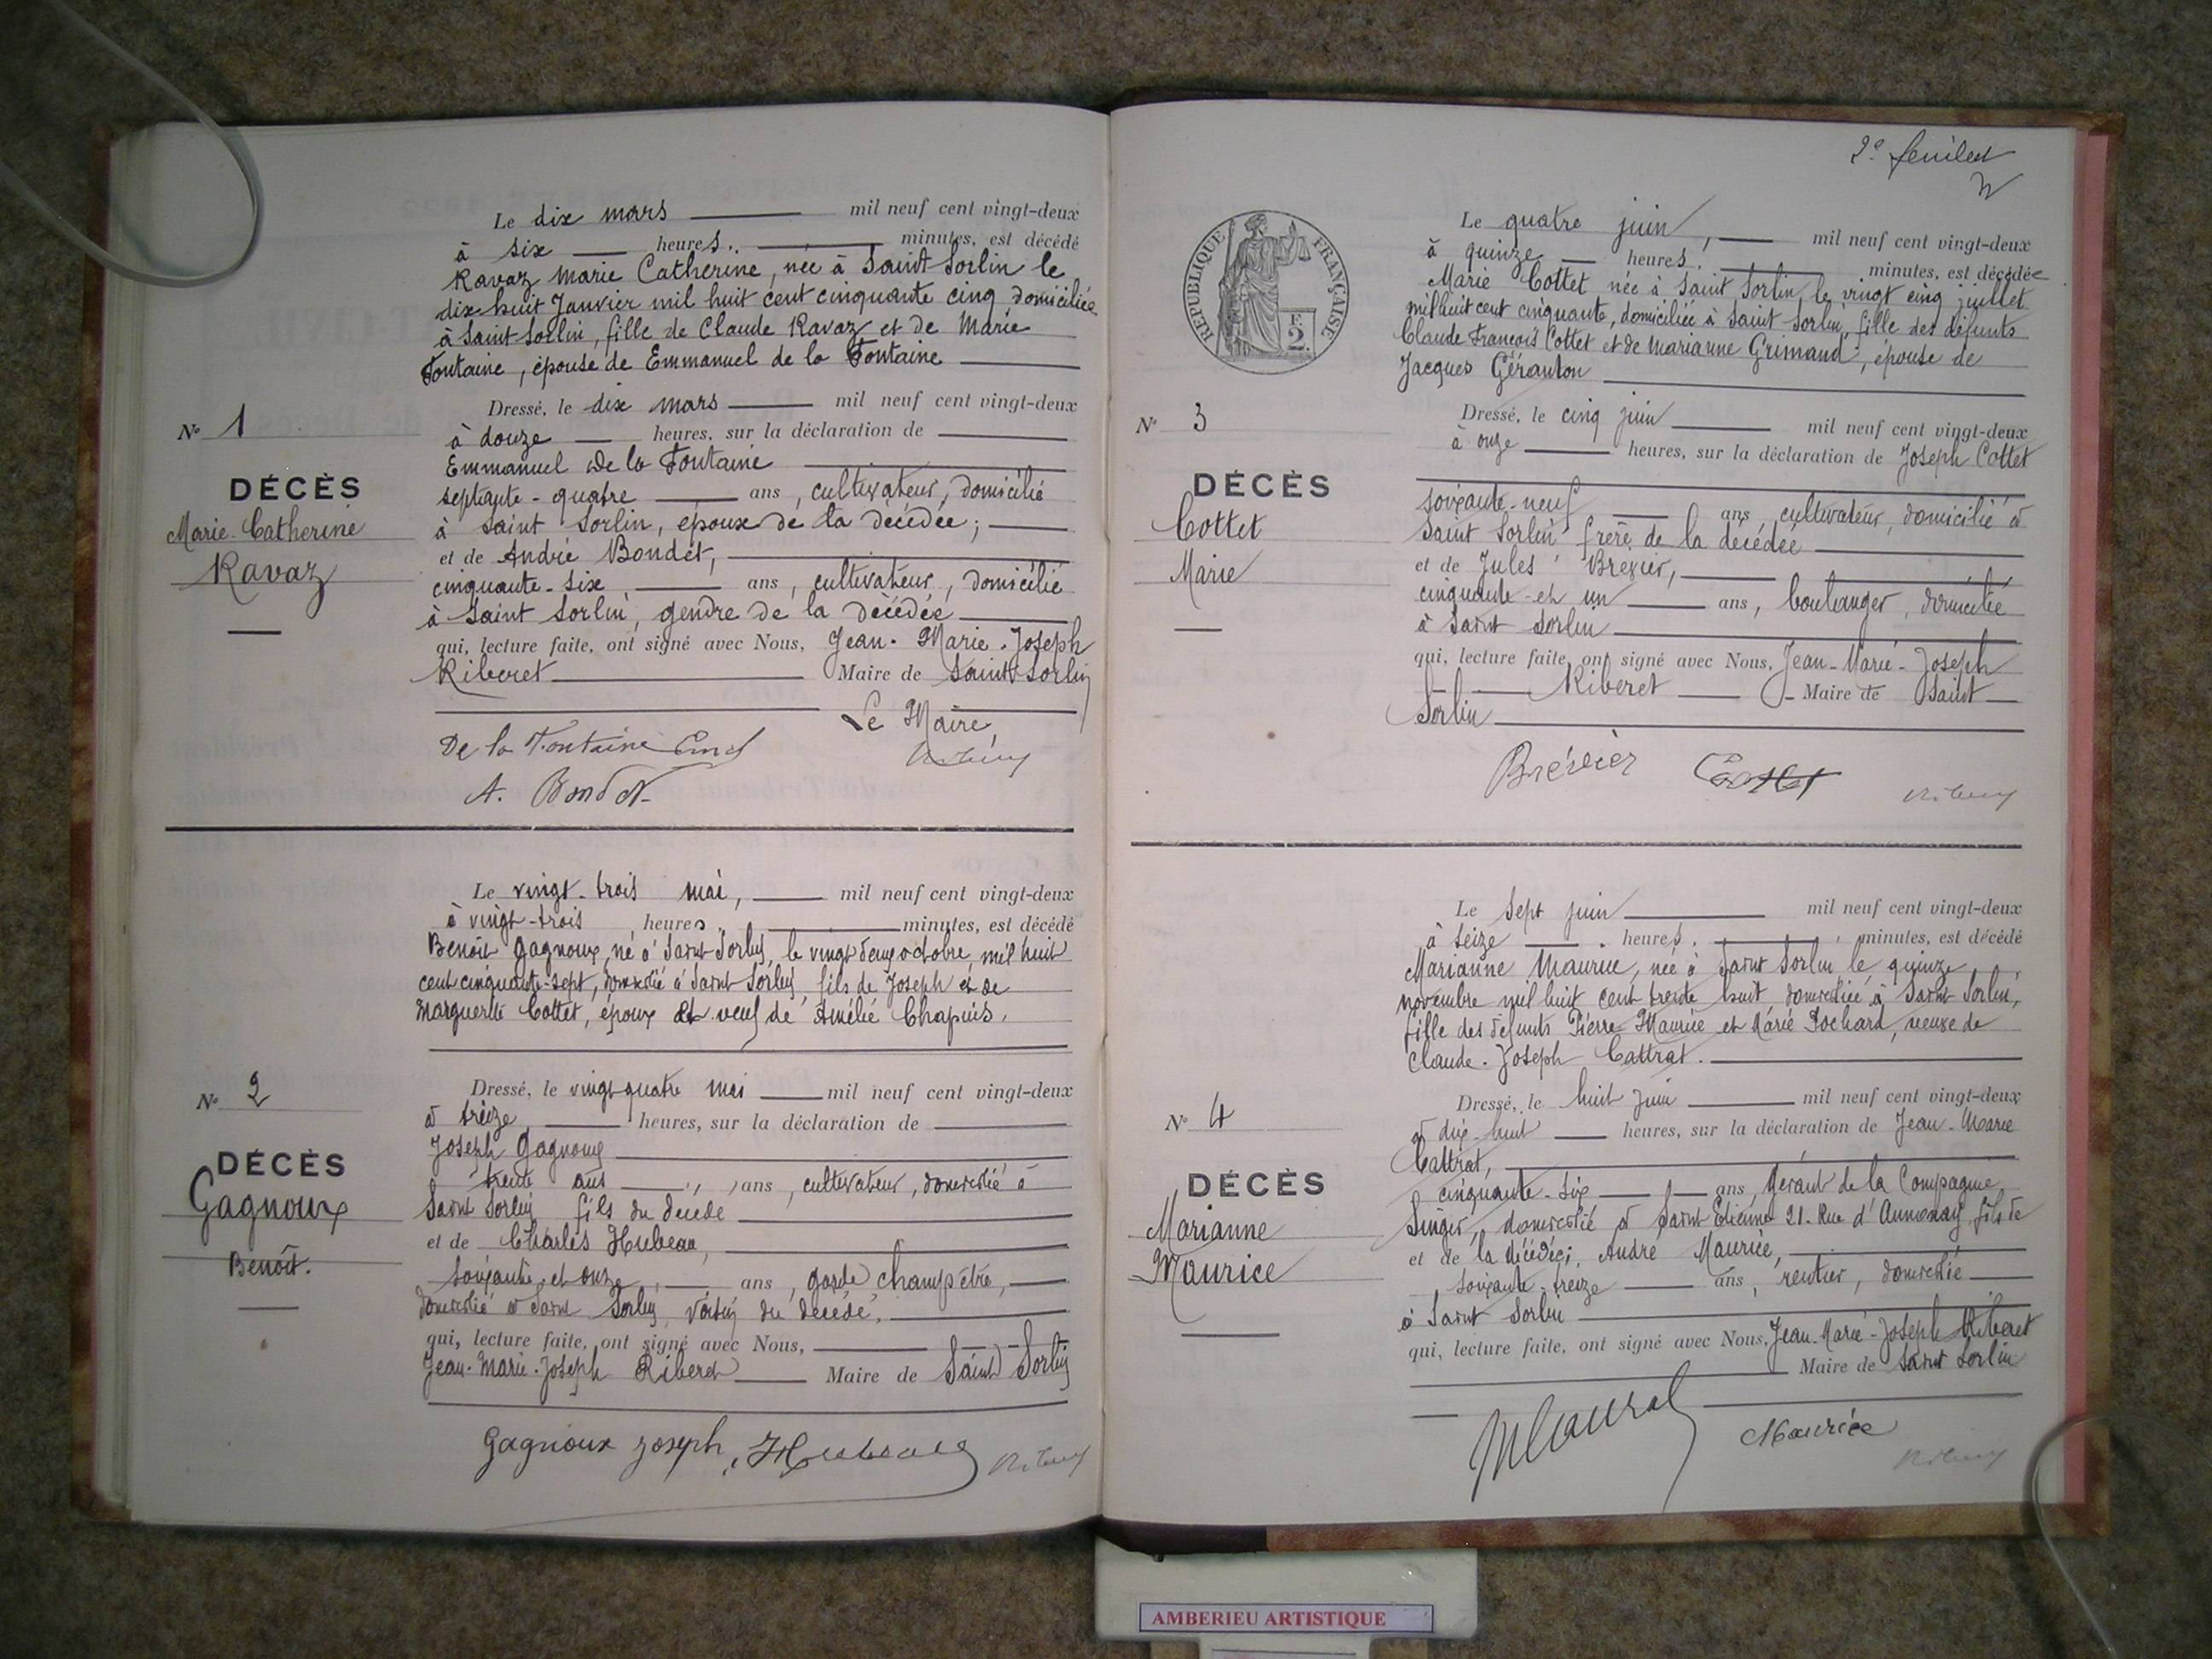 Le dix mars mil neuf cent vingt-deux
à six heures, minutes, est décédé
Ravaz Marie Catherine, née à Saint Sorlin le
dix huit Janvier mil huit cent cinquante cinq domiciliée
à Saint Sorlin, fille de Claude Ravaz et de Marie
Fontaine, épouse de Emmanuel de la Fontaine
Dressé, le dix mars mil neuf cent vingt-deux
à douze heures, sur la déclaration de
Emmanuel de la Fontaine
septante-quatre ans, cultivateur, domicilié
à Saint Sorlin, époux de la décédée;
et de André Bondet,
cinquante-six ans, cultivateur, domicilié
à Saint Sorlin, gendre de la décédée
qui, lecture faite, ont signé avec Nous, Jean-Marie-Joseph
Riberet Maire de Saint Sorlin
Le Maire,
De la Fontaine
A. Bondet
N° 1
DÉCÈS
Marie-Catherine
Ravaz
Le vingt-trois mai, mil neuf cent vingt-deux
à vingt-trois heures, minutes, est décédé
Benoît Gagnoux, né à Saint-Sorlin, le vingt deux octobre, mil huit
cent cinquante-sept, domicilié à Saint Sorlin, fils de Joseph et de
Marguerite Cottet, époux et veuf de Amélie Chapuis.
Dressé, le vingt-quatre mai mil neuf cent vingt-deux
à treize heures, sur la déclaration de
Joseph Gagnoux
trente ans ans, cultivateur, domicilié à
Saint Sorlin fils du décédé
et de Charles Hubeau,
soixante et onze, ans, garde champêtre,
domicilié à Saint Sorlin, voisin du décédé,
qui, lecture faite, ont signé avec Nous,
Jean-Marie-Joseph Riberet Maire de Saint Sorlin
Gagnoux Joseph, Hubeau
N° 2
DÉCÈS
Gagnoux
Benoît.
2e feuillet
REPUBLIQUE FRANÇAISE
F.
2.
Le quatre juin, mil neuf cent vingt-deux
à quinze heures, minutes, est décédée
Marie Cottet née à Saint Sorlin, le vingt cinq juillet
mil huit cent cinquante, domiciliée à Saint Sorlin, fille des défunts
Claude François Cottet et de Marianne Grimaud, épouse de
Jacques Géranton
Dressé, le cinq juin mil neuf cent vingt-deux
à onze heures, sur la déclaration de Joseph Cottet
soixante-neuf ans, cultivateur, domicilié à
Saint Sorlin frère de la décédée
et de Jules Brevier,
cinquante et un ans, boulanger, domicilié
à Saint Sorlin
qui, lecture faite, ont signé avec Nous, Jean-Marie-Joseph
Riberet Maire de Saint
Sorlin
Brévier Cottet
N° 3
DÉCÈS
Cottet
Marie
Le Sept juin mil neuf cent vingt-deux
à seize heures, minutes, est décédé
Marianne Maurice, née à Saint Sorlin le quinze
novembre mil huit cent trente huit domiciliée à Saint Sorlin,
fille des défunts Pierre Maurice et Marie Pochard, veuve de
Claude-Joseph Cattrat.
Dressé, le huit juin mil neuf cent vingt-deux
à dix-huit heures, sur la déclaration de Jean-Marie
Cattrat,
cinquante-six ans, Gérant de la Compagnie
Singer, domicilié à Saint Etienne 21. Rue d'Annonay, fils de
et de la décédée; André Maurice,
soixante-treize ans, rentier, domicilié
à Saint Sorlin
qui, lecture faite, ont signé avec Nous, Jean-Marie-Joseph Riberet
Maire de Saint Sorlin
Maurice
N° 4
DÉCÈS
Marianne
Maurice
AMBERIEU ARTISTIQUE